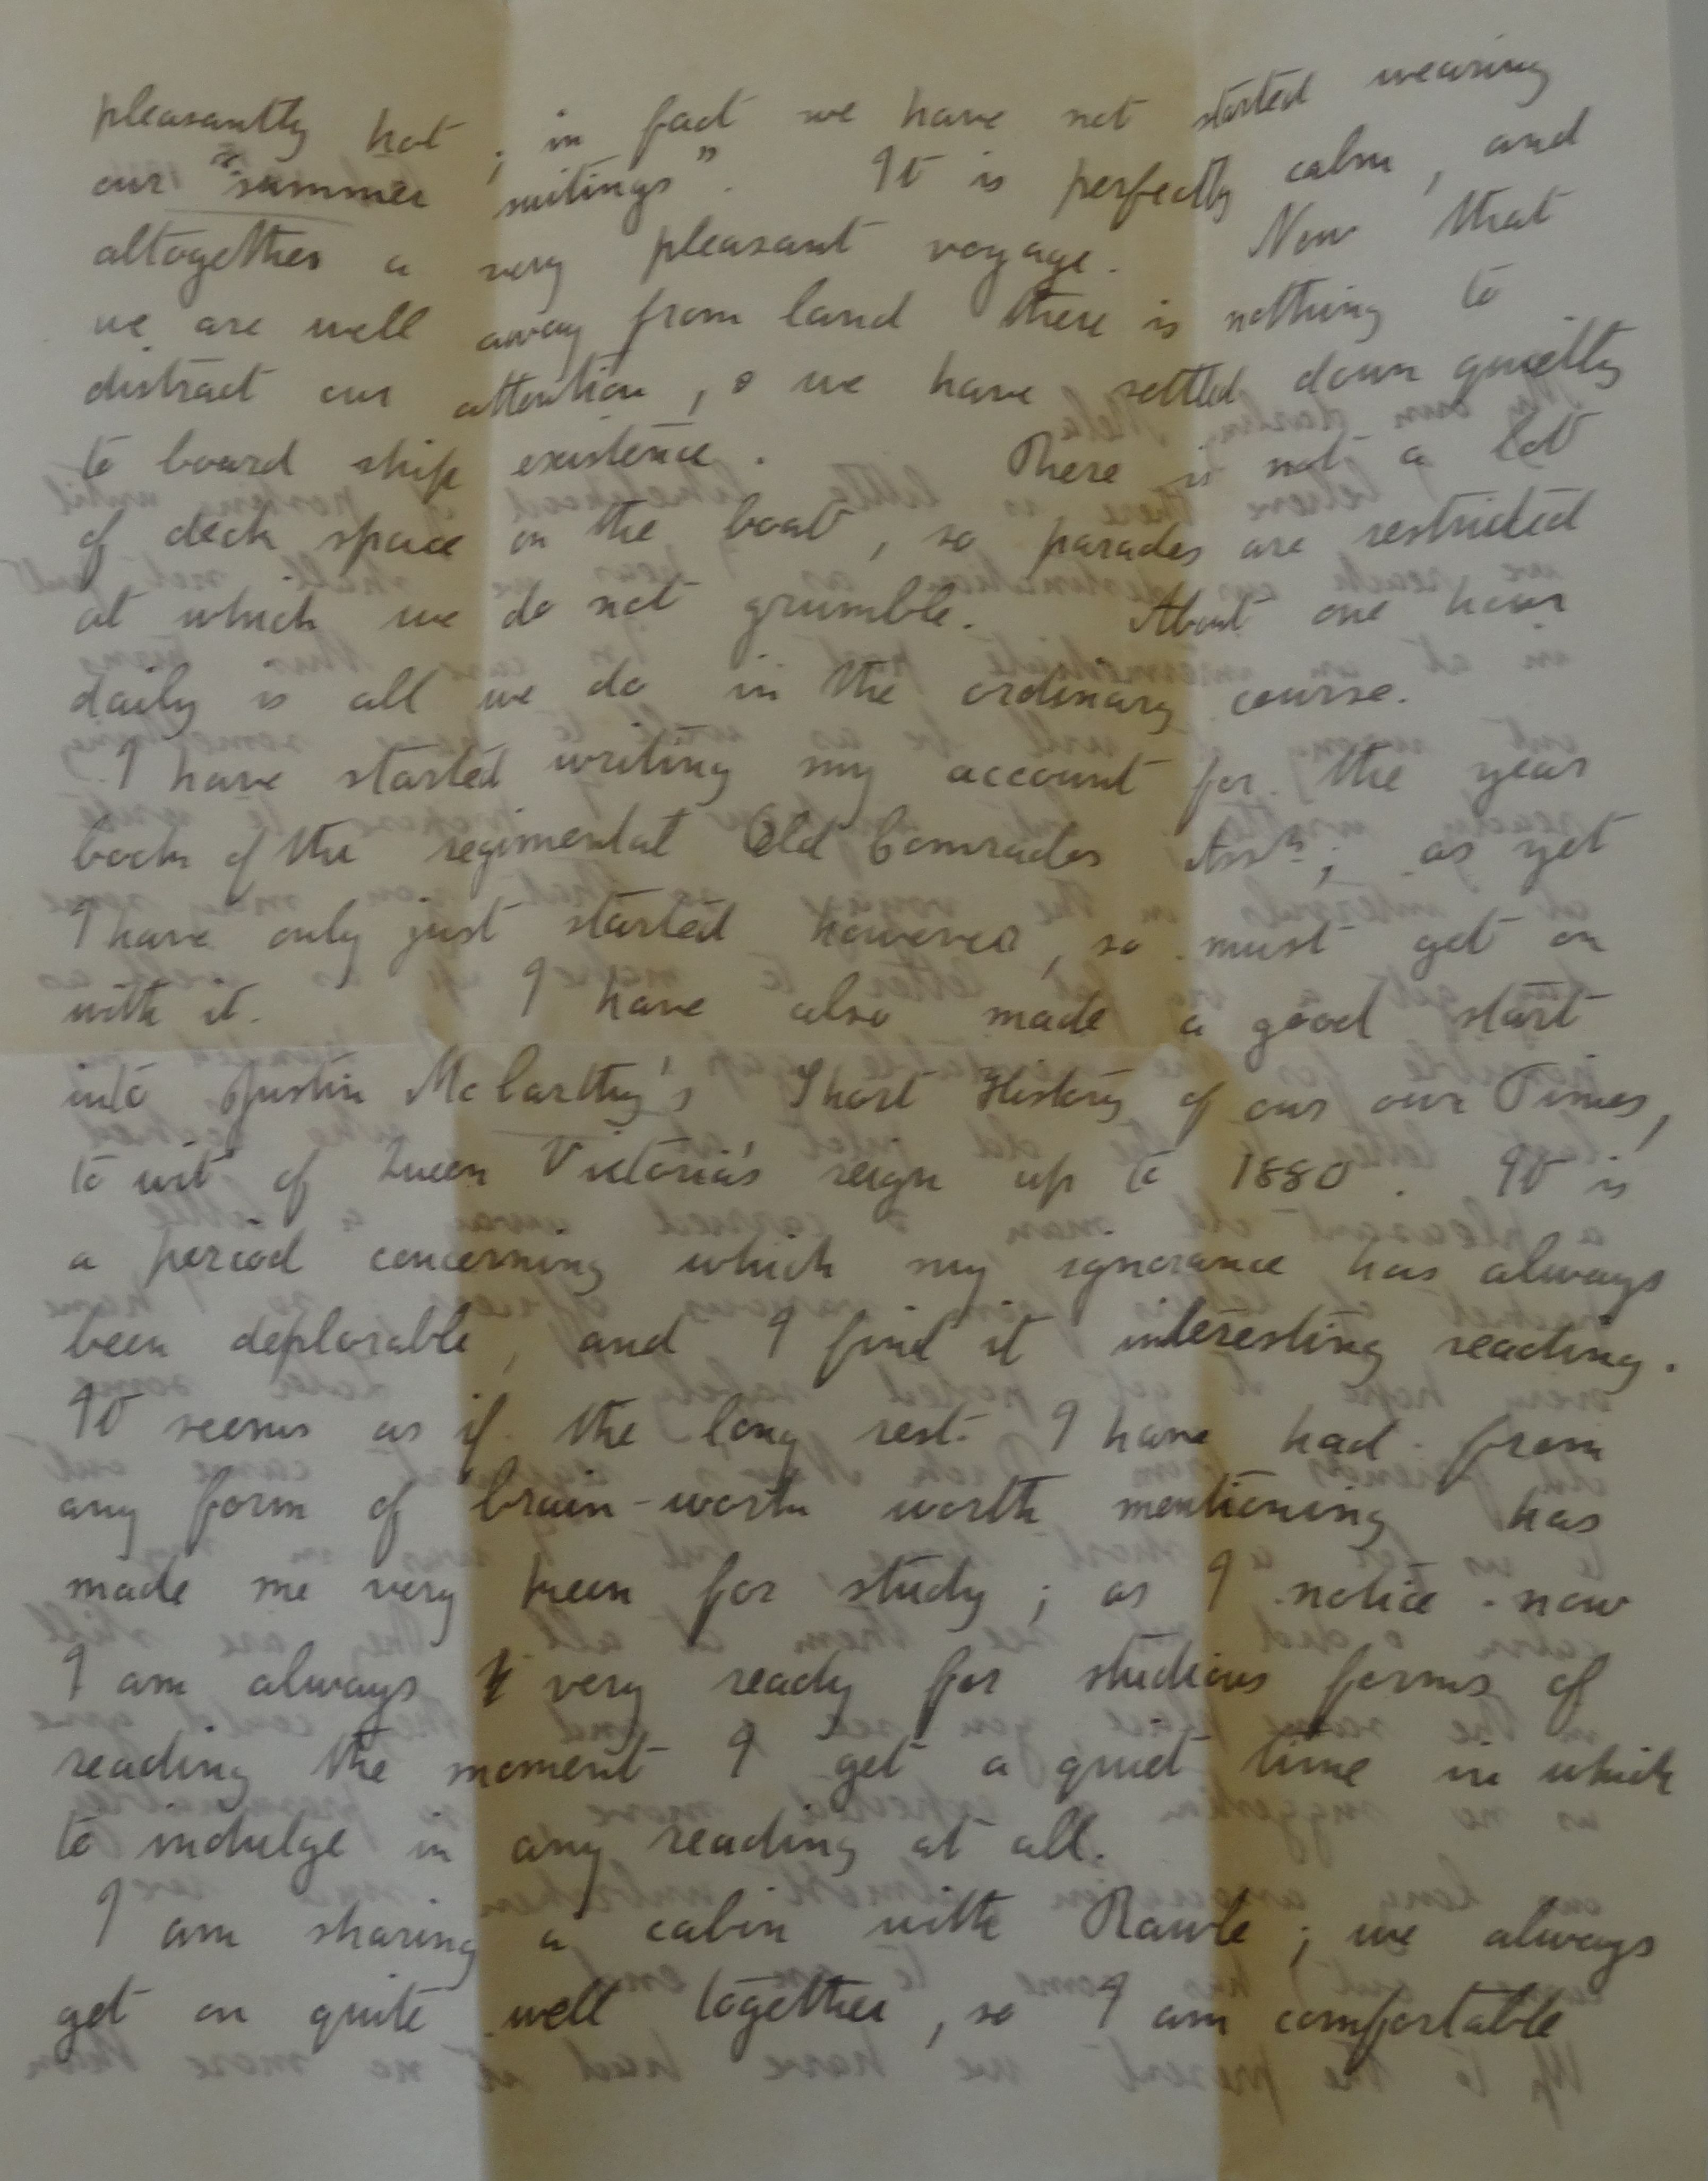 pleasantly hot ; in fact we have not started wearing
our "summer suitings". It is perfectly calm, and
altogether a very pleasant voyage. Now that
we are well away from land there is nothing to
distract our attention, & we have settled down quietly
to board ship existence. There is not a lot
of deck space on the boat, so parades are restricted
at which we do not grumble. About one hour
daily is all we do in the ordinary course.
I have started writing my account for the year
book of the regimental Old Comrades Assn; as yet
I have only just started however, so must get on
with it. I have also made a good start
into Justin McCarthy's Short History of our own Times,
to wit of Queen Victoria's reign up to 1880. It is
a period concerning which my ignorance has always
been deplorable, and I find it interesting reading.
It seems as if the long rest I have had from
any form of brain-work worth mentioning has
made me very keen for study; as I notice now
I am always very ready for studious forms of
reading the moment I get a quiet time in which
to indulge in any reading at all.
I am sharing a cabin with Rawle; we always
get on quite well together, so I am comfortable